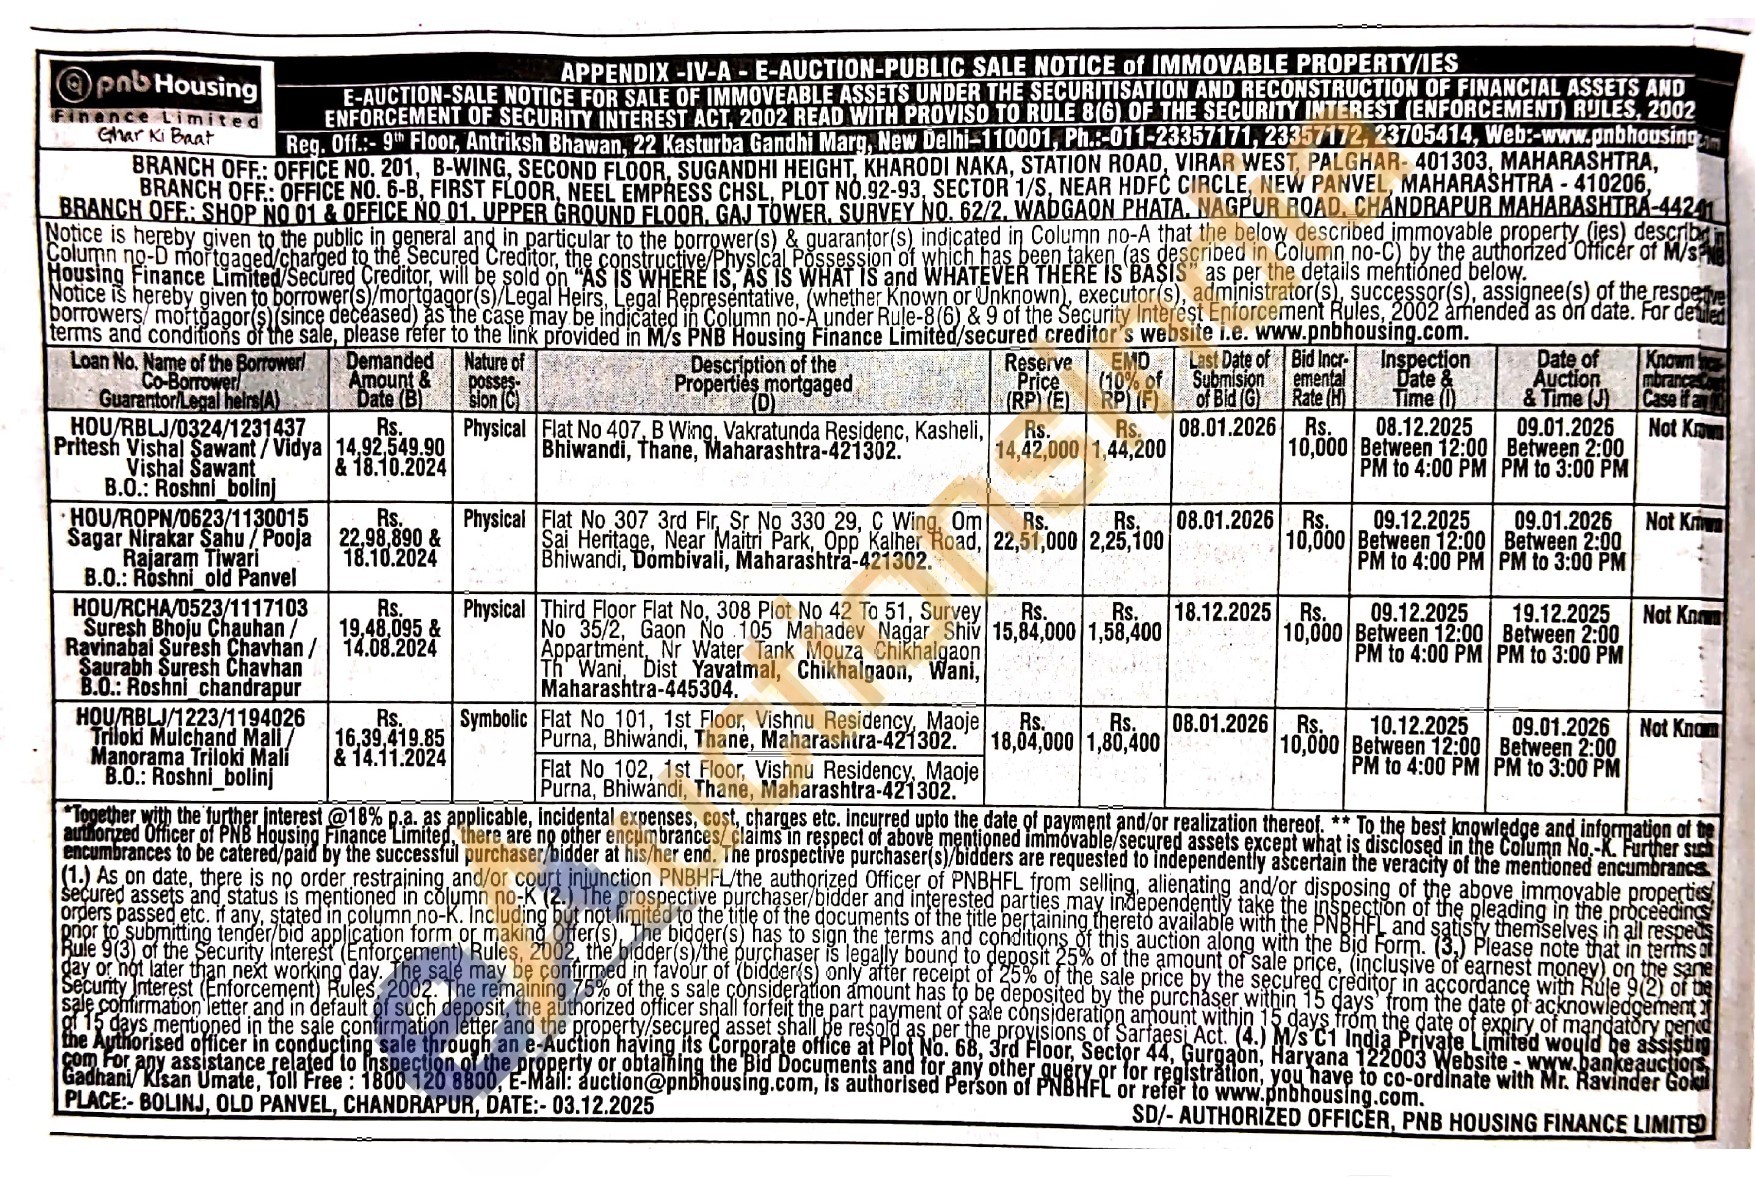 pnb Housing
Finance Limited
Ghar Ki Baat
APPENDIX -IV-A - E-AUCTION-PUBLIC SALE NOTICE of IMMOVABLE PROPERTY/IES
E-AUCTION-SALE NOTICE FOR SALE OF IMMOVEABLE ASSETS UNDER THE SECURITISATION AND RECONSTRUCTION OF FINANCIAL ASSETS AND
ENFORCEMENT OF SECURITY INTEREST ACT, 2002 READ WITH PROVISO TO RULE 8(6) OF THE SECURITY INTEREST (ENFORCEMENT) RULES, 2002
Reg. Off.:- 9th Floor, Antriksh Bhawan, 22 Kasturba Gandhi Marg, New Delhi-110001, Ph.:-011-23357171, 23357172, 23705414, Web:-www.pnbhousing.com
BRANCH OFF.: OFFICE NO. 201, B-WING, SECOND FLOOR, SUGANDHI HEIGHT, KHARODI NAKA, STATION ROAD, VIRAR WEST, PALGHAR- 401303, MAHARASHTRA,
BRANCH OFF.: OFFICE NO. 6-B, FIRST FLOOR, NEEL EMPRESS CHSL, PLOT NO.92-93, SECTOR 1/S, NEAR HDFC CIRCLE, NEW PANVEL, MAHARASHTRA - 410206,
BRANCH OFF.: SHOP NO 01 & OFFICE NO 01, UPPER GROUND FLOOR, GAJ TOWER, SURVEY NO. 62/2, WADGAON PHATA, NAGPUR ROAD, CHANDRAPUR MAHARASHTRA-44241
Notice is hereby given to the public in general and in particular to the borrower(s) & guarantor(s) indicated in Column no-A that the below described immovable property (ies) describ in
Column no-D mortgaged/charged to the Secured Creditor, the constructive/Physical Possession of which has been taken (as described in Column no-C) by the authorized Officer of M/s PNB
Housing Finance Limited/Secured Creditor, will be sold on "AS IS WHERE IS, AS IS WHAT IS and WHATEVER THERE IS BASIS" as per the details mentioned below.
Notice is hereby given to borrower(s)/mortgagor(s)/Legal Heirs, Legal Representative, (whether Known or Unknown), executor(s), administrator(s), successor(s), assignee(s) of the respective
borrowers/ mortgagor(s)(since deceased) as the case may be indicated in Column no-A under Rule-8(6) & 9 of the Security Interest Enforcement Rules, 2002 amended as on date. For detailed
terms and conditions of the sale, please refer to the link provided in M/s PNB Housing Finance Limited/secured creditor's website i.e. www.pnbhousing.com.
Loan No. Name of the Borrower/ Co-Borrower/ Guarantor/Legal heirs(A)
Demanded Amount & Date (B)
Nature of posses-sion (C)
Description of the Properties mortgaged (D)
Reserve Price (RP) (E)
EMD (10% of RP) (F)
Last Date of Submision of Bid (G)
Bid Incr-emental Rate (H)
Inspection Date & Time (I)
Date of Auction & Time (J)
Known
Case if any
HOU/RBLJ/0324/1231437
Pritesh Vishal Sawant / Vidya
Vishal Sawant
B.O.: Roshni_bolinj
Rs.
14,92,549.90
& 18.10.2024
Physical
Flat No 407, B Wing, Vakratunda Residenc, Kasheli,
Bhiwandi, Thane, Maharashtra-421302.
Rs.
14,42,000
Rs.
1,44,200
08.01.2026
Rs.
10,000
08.12.2025
Between 12:00
PM to 4:00 PM
09.01.2026
Between 2:00
PM to 3:00 PM
Not Known
HOU/ROPN/0623/1130015
Sagar Nirakar Sahu / Pooja
Rajaram Tiwari
B.O.: Roshni_old Panvel
Rs.
22,98,890 &
18.10.2024
Physical
Flat No 307 3rd Flr, Sr No 330 29, C Wing, Om
Sai Heritage, Near Maitri Park, Opp Kalher Road,
Bhiwandi, Dombivali, Maharashtra-421302.
Rs.
22,51,000
Rs.
2,25,100
08.01.2026
Rs.
10,000
09.12.2025
Between 12:00
PM to 4:00 PM
09.01.2026
Between 2:00
PM to 3:00 PM
Not Known
HOU/RCHA/0523/1117103
Suresh Bhoju Chauhan /
Ravinabai Suresh Chavhan /
Saurabh Suresh Chavhan
B.O.: Roshni_chandrapur
Rs.
19,48,095 &
14.08.2024
Physical
Third Floor Flat No, 308 Plot No 42 To 51, Survey
No 35/2, Gaon No 105 Mahadev Nagar Shiv
Appartment, Nr Water Tank Mouza Chikhalgaon
Th Wani, Dist Yavatmal, Chikhalgaon, Wani,
Maharashtra-445304.
Rs.
15,84,000
Rs.
1,58,400
18.12.2025
Rs.
10,000
09.12.2025
Between 12:00
PM to 4:00 PM
19.12.2025
Between 2:00
PM to 3:00 PM
Not Known
HOU/RBLJ/1223/1194026
Triloki Mulchand Mali /
Manorama Triloki Mali
B.O.: Roshni_bolinj
Rs.
16,39,419.85
& 14.11.2024
Symbolic
Flat No 101, 1st Floor, Vishnu Residency, Maoje
Purna, Bhiwandi, Thane, Maharashtra-421302.
Flat No 102, 1st Floor, Vishnu Residency, Maoje
Purna, Bhiwandi, Thane, Maharashtra-421302.
Rs.
18,04,000
Rs.
1,80,400
08.01.2026
Rs.
10,000
10.12.2025
Between 12:00
PM to 4:00 PM
09.01.2026
Between 2:00
PM to 3:00 PM
Not Known
*Together with the further interest @18% p.a. as applicable, incidental expenses, cost, charges etc. incurred upto the date of payment and/or realization thereof. ** To the best knowledge and information of the
authorized Officer of PNB Housing Finance Limited, there are no other encumbrances/ claims in respect of above mentioned immovable/secured assets except what is disclosed in the Column No.-K. Further such
encumbrances to be catered/paid by the successful purchaser/bidder at his/her end. The prospective purchaser(s)/bidders are requested to independently ascertain the veracity of the mentioned encumbrances.
(1.) As on date, there is no order restraining and/or court injunction PNBHFL/the authorized Officer of PNBHFL from selling, alienating and/or disposing of the above immovable properties/
secured assets and status is mentioned in column no-K (2.) The prospective purchaser/bidder and interested parties may independently take the inspection of the pleading in the proceedings/
orders passed etc. if any, stated in column no-K. Including but not limited to the title of the documents of the title pertaining thereto available with the PNBHFL and satisfy themselves in all respects
prior to submitting tender/bid application form or making Offer(s). The bidder(s) has to sign the terms and conditions of this auction along with the Bid Form. (3.) Please note that in terms of
Rule 9(3) of the Security Interest (Enforcement) Rules, 2002, the bidder(s)/the purchaser is legally bound to deposit 25% of the amount of sale price, (inclusive of earnest money) on the same
day or not later than next working day. The sale may be confirmed in favour of (bidder(s) only after receipt of 25% of the sale price by the secured creditor in accordance with Rule 9(2) of the
Security Interest (Enforcement) Rules, 2002. The remaining 75% of the s sale consideration amount has to be deposited by the purchaser within 15 days' from the date of acknowledgement of
sale confirmation letter and in default of such deposit, the authorized officer shall forfeit the part payment of sale consideration amount within 15 days from the date of expiry of mandatory period
of 15 days mentioned in the sale confirmation letter and the property/secured asset shall be resold as per the provisions of Sarfaesi Act. (4.) M/s C1 India Private Limited would be assisting
the Authorised officer in conducting sale through an e-Auction having its Corporate office at Plot No. 68, 3rd Floor, Sector 44, Gurgaon, Haryana 122003 Website - www.bankeauctions.
com For any assistance related to Inspection of the property or obtaining the Bid Documents and for any other query or for registration, you have to co-ordinate with Mr. Ravinder Gokul
Gadhani/ Kisan Umate, Toll Free : 1800 120 8800, E-Mail: auction@pnbhousing.com, is authorised Person of PNBHFL or refer to www.pnbhousing.com.
PLACE:- BOLINJ, OLD PANVEL, CHANDRAPUR, DATE:- 03.12.2025
SD/- AUTHORIZED OFFICER, PNB HOUSING FINANCE LIMITED
eAuctionsIndia